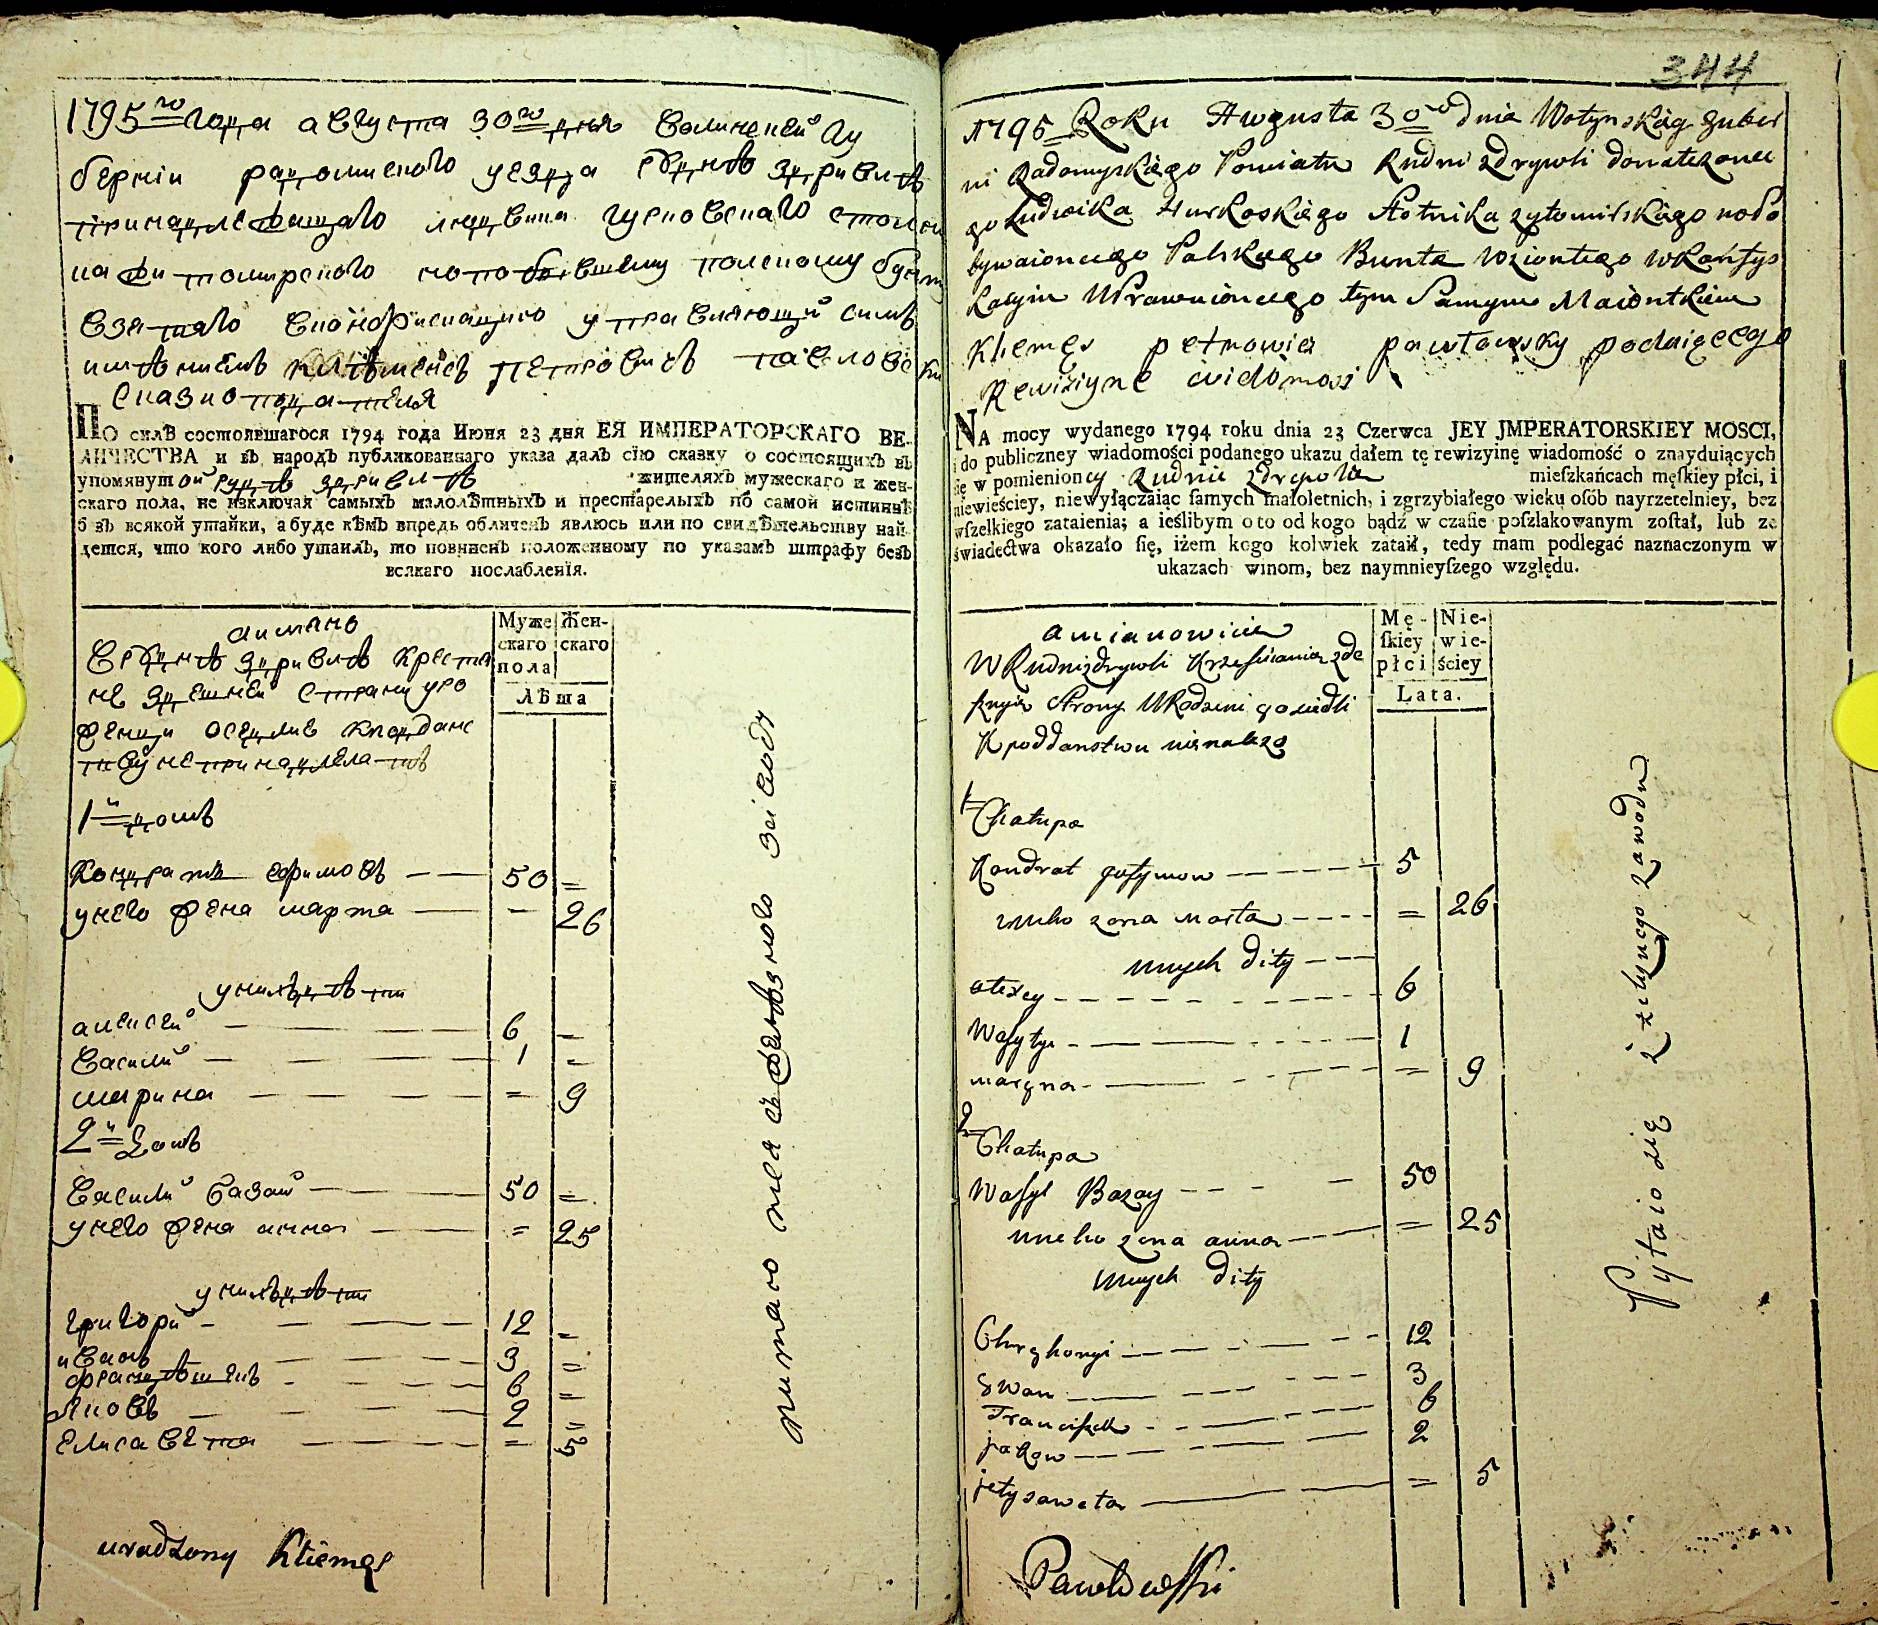 1795го года августа 30го дня волинской гу
берніи радомиского уезда рудне здривле
принадлежащаго людвика гурковскаго столни
ка житомирскаго
взятаго управляющий симъ
имѣниемъ клѣменсъ петровичъ павловски
сказкоподателя
ПО силѣ состоявшагося 1794 года Июня 23 дня ЕЯ ИМПЕРАТОРСКАГО ВЕ-
ЛИЧЕСТВА и въ народъ публикованнаго указа далъ сїю сказку о состоящихъ въ
упомянутой рудне здривле жителяхъ мужескаго и жен-
скаго пола, не изключая самыхъ малолѣтныхъ и престарелыхъ по самой истиннѣ
б въ всякой утайки, а буде кѣмъ впредь обличенъ явлюсь или по свидѣтельству най-
дется, что кого либо утаилъ, то повиненъ положенному по указамъ штрафу безъ
всякаго послабленїя.
аимяно
рудне здривле крестя
не здешней страни уро
женци оседлие к подданс
тву непринадлежать
Муже
скаго
пола
Жен-
скаго
Лѣта
1й домъ
Кондратъ ефимовъ 50 =
у него жена марта - 26
у нихъ дѣти
алексей 6 -
василий 1 -
марина = 9
2й домъ
Василий базай 50 =
у него жена анна = 25
у нихъ дѣти
григорий 12 =
иванъ 3 =
францѣшекъ 6 =
Яковъ 2 =
елисавета = 5
питаютса съ желѣзного заводу
urodzony Kliemęs
344
1795 Roku Augusta 30go dnia Wołynskiag guber
ni Radomyskiego Powiatu Rudni zdrywli donalezonce
go Ludwika Hurkoskiego Stolnika zytomirskiego
bywaioncego Polskiego Bunta wziontego w Konfys
Kacyiu Uprawuioncego tym Samym Maiontkiem
Klemęs petrowicz pawłowsky podaiącego
Rewiziyne widomosi
NA mocy wydanego 1794 roku dnia 23 Czerwca JEY JMPERATORSKIEY MOSCI,
i do publiczney wiadomości podanego ukazu dałem tę rewizyinę wiadomość o znayduiących
się w pomienioncy Rudnie zdrywla mieſzkańcach męſkiey płci, i
niewieściey, niewyłączaiąc ſamych małoletnich, i zgrzybiałego wieku osób nayrzetelniey, bez
wſzelkiego zataienia; a ieślibym o to od kogo bądź w czaſie poſzlakowanym zoſtał, lub ze
świadectwa okazało ſię, iżem kogo kolwiek zataił, tedy mam podlegać naznaczonym w
ukazach winom, bez naymnieyſzego względu.
amianowicie
W Rudni zdrywli Krzesćianie zde
sznyia strony Urodzeni gosiedli
K poddanstwu nienalezo
Mę-
ſkiey
płci
Nie-
wie-
ściey
Lata.
1 Chałupa
Kondrat Jofymow 5
uneho zona marta = 26
unych dity
ołexey 6
Wasyly 1
maryna = 9
2 Chałupa
Wasyl Bazay 50
uneho zona anna = 25
unych dity
Chryhoryi 12
Iwan 3
Franciszek 6
jakow 2
jełyzaweta = 5
Pytaio się z zełyznego zawodu
Pawłowſki